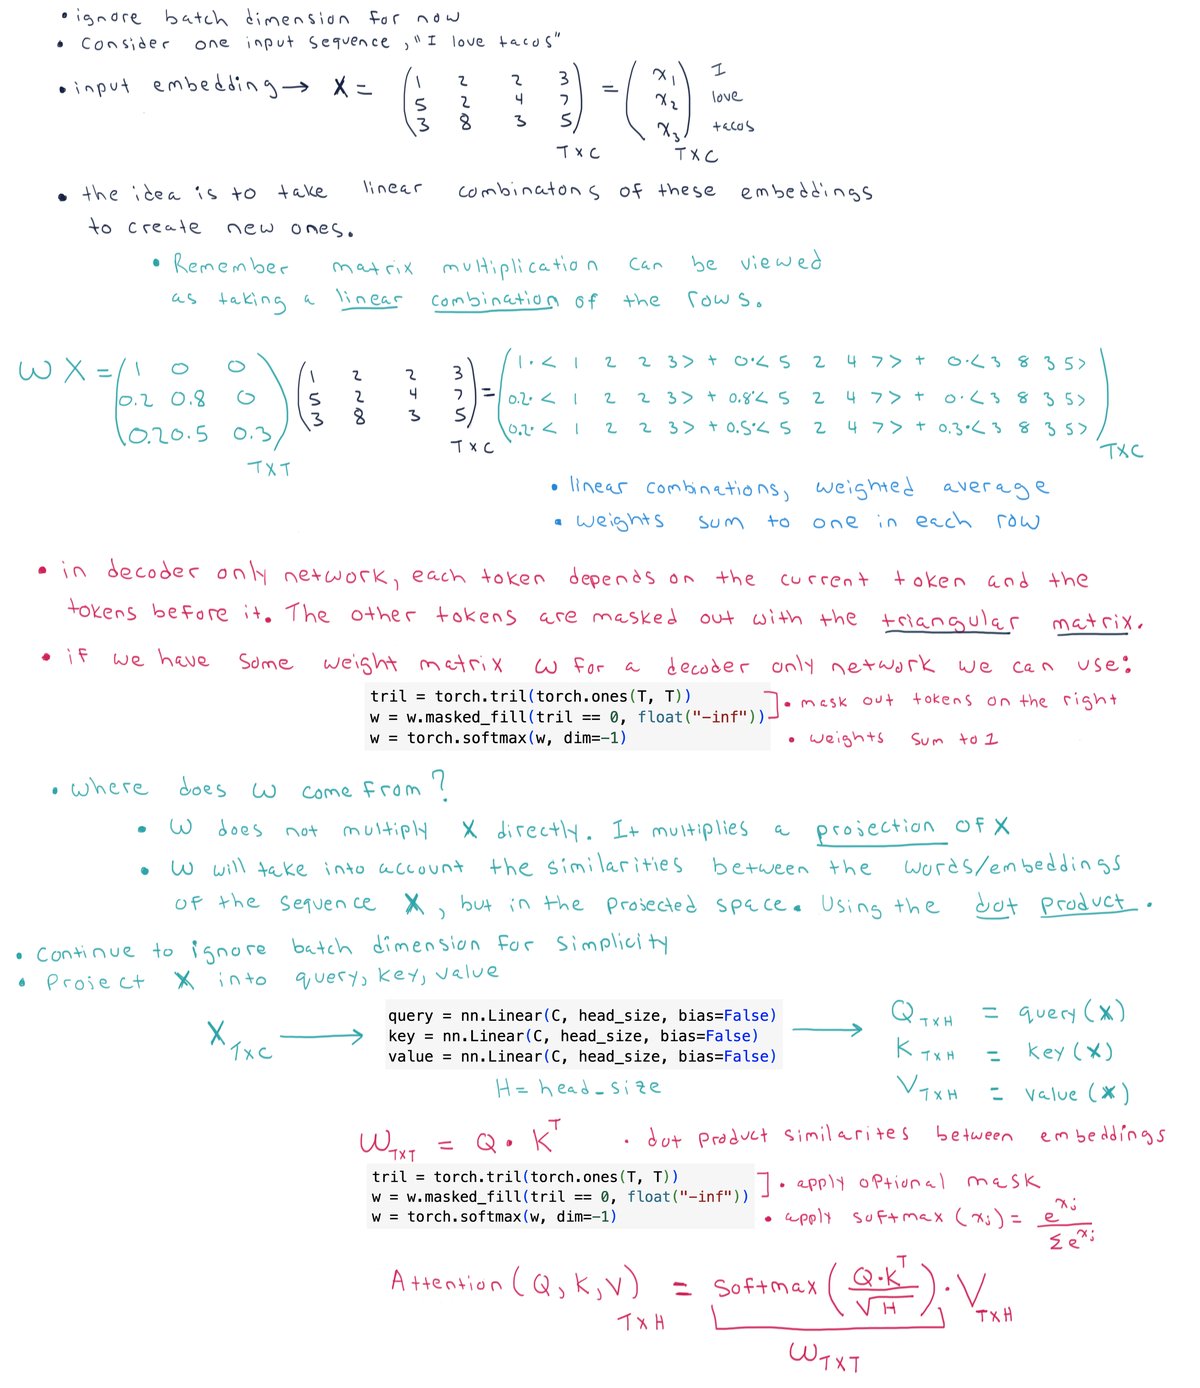 • ignore batch dimension for now
• Consider one input sequence, "I love tacos"
• input embedding → X = ( 1 2 2 3 = ( x₁ ) I
5 2 4 7 x₂ love
3 8 3 5 ) x₃ tacos
TXC TXC
• the idea is to take linear combinatons of these embeddings
to create new ones.
• Remember matrix multiplication can be viewed
as taking a linear combination of the rows.
W X = ( 1 0 0 ) ( 1 2 2 3 ) = ( 1·< 1 2 2 3> + 0·< 5 2 4 7> + 0·<3 8 3 5>
0.2 0.8 0 5 2 4 7 0.2·< 1 2 2 3> + 0.8·< 5 2 4 7> + 0·<3 8 3 5>
0.2 0.5 0.3 3 8 3 5 0.2·< 1 2 2 3> + 0.5·< 5 2 4 7> + 0.3·<3 8 3 5> )
TXT TXC TXC
• linear combinations, weighted average
• weights sum to one in each row
• in decoder only network, each token depends on the current token and the
tokens before it. The other tokens are masked out with the triangular matrix.
• if we have some weight matrix W for a decoder only network we can use:
tril = torch.tril(torch.ones(T, T))
w = w.masked_fill(tril == 0, float("-inf")) ] • mask out tokens on the right
w = torch.softmax(w, dim=-1) • weights sum to 1
• where does W come from?
• W does not multiply X directly. It multiplies a projection of X
• W will take into account the similarities between the words/embeddings
of the sequence X, but in the projected space. Using the dot product.
• Continue to ignore batch dimension for simplicity
• Project X into query, key, value
X TXC →
query = nn.Linear(C, head_size, bias=False)
key = nn.Linear(C, head_size, bias=False)
value = nn.Linear(C, head_size, bias=False)
H = head_size
→ Q TXH = query(X)
K TXH = key(X)
V TXH = value(X)
W TXT = Q · Kᵀ • dot product similarites between embeddings
tril = torch.tril(torch.ones(T, T))
w = w.masked_fill(tril == 0, float("-inf")) ] • apply optional mask
w = torch.softmax(w, dim=-1) • apply softmax (xⱼ) = e^xⱼ / Σe^xⱼ
Attention (Q, K, V) TXH = softmax ( Q·Kᵀ / √H ) · V TXH
W TXT